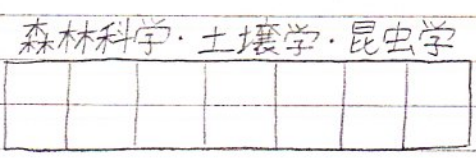 森林科学・土壌学・昆虫学